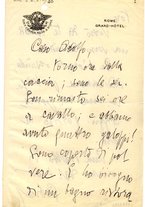 ROME
GRAND-HÔTEL
Caro Adolfo,
torno ora dalla
caccia; sono le sei.
Son rimasto sei ore
a cavallo; e abbiamo
avuto quattro galoppi!
Sono coperto di pol-
vere. Ho bisogno
di un bagno